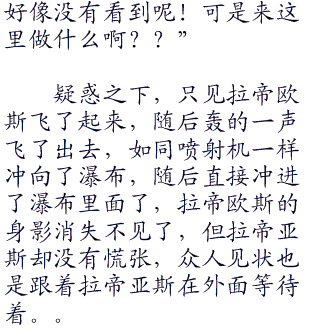 好像没有看到呢！可是来这
里做什么啊？？”
疑惑之下，只见拉帝欧
斯飞了起来，随后轰的一声
飞了出去，如同喷射机一样
冲向了瀑布，随后直接冲进
了瀑布里面了，拉帝欧斯的
身影消失不见了，但拉帝亚
斯却没有慌张，众人见状也
是跟着拉帝亚斯在外面等待
着。。